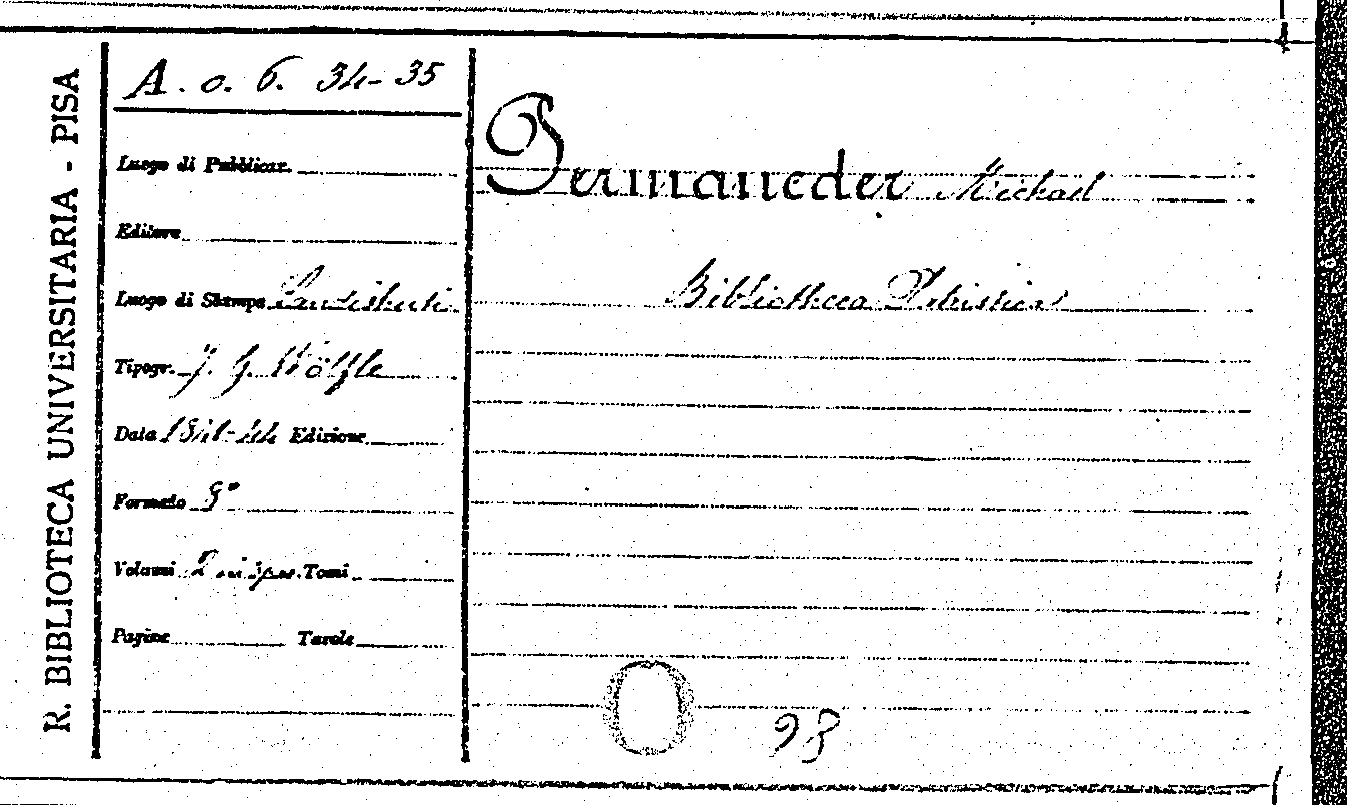 R. BIBLIOTECA UNIVERSITARIA - PISA
A. o. 6. 34-35
Luogo di Pubblicaz.
Editore
Luogo di Stampa Landishuti
Tipogr. J. G. Wölfle
Data 1841-44 Edizione
Formato 8°
Volumi 2 in Tomi
Pagine Tavole
Permaneder Michael
Bibliotheca Patristica
98